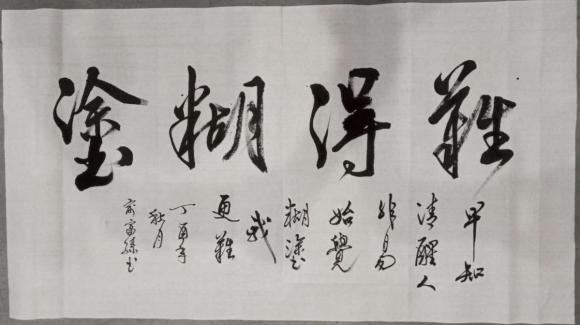 難得糊塗
早知
清醒人
非易
始覺
糊塗
我
更難
丁酉年
秋月